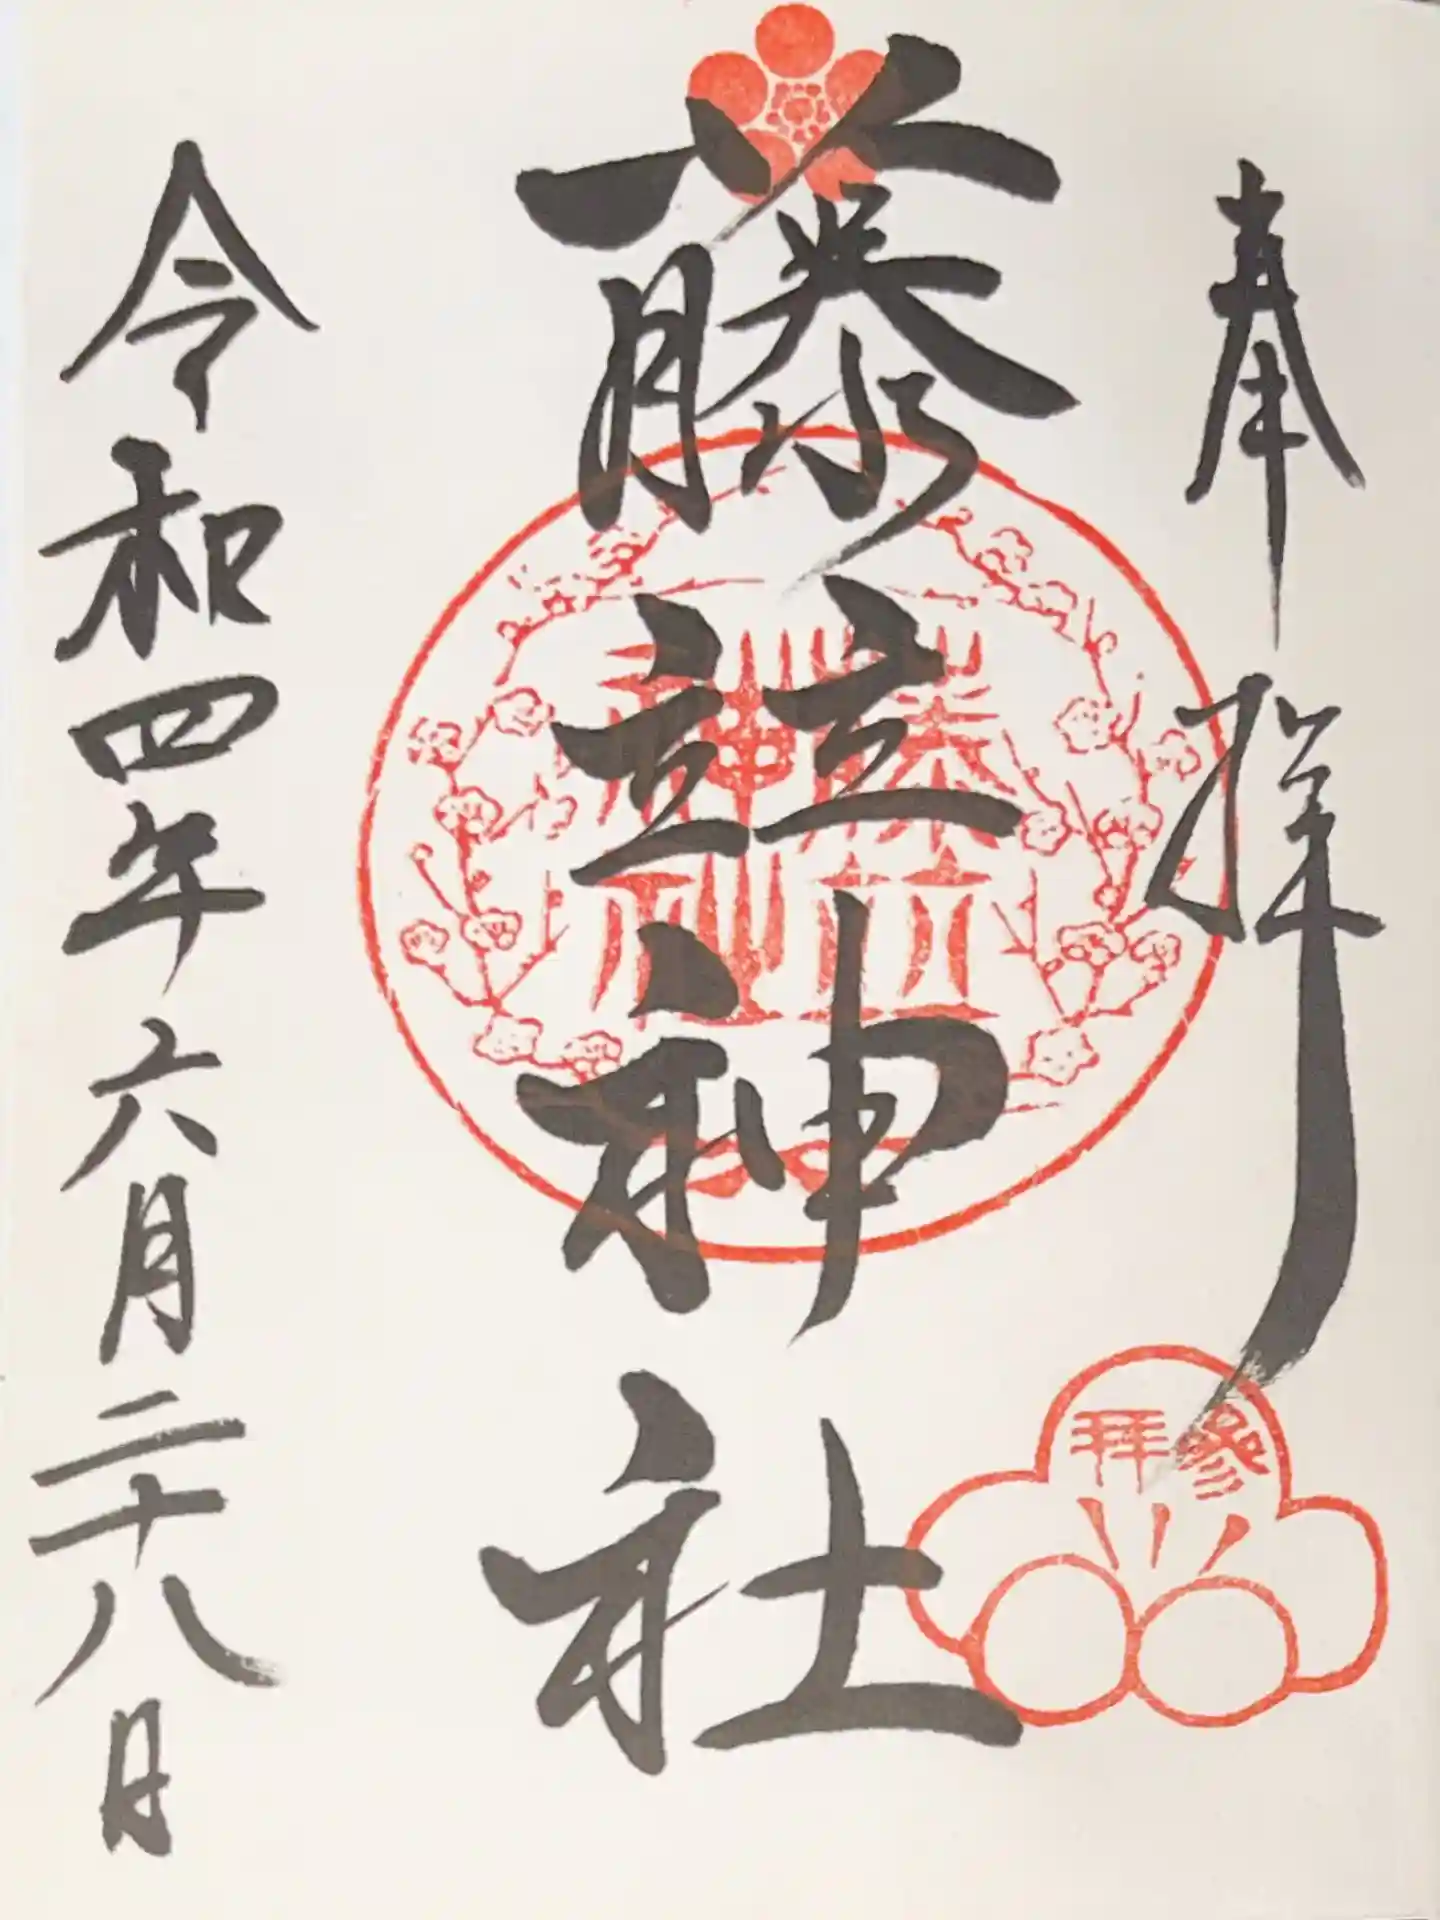 奉拝
藤並神社
令和四年六月二十八日
参拝
藤並
神社